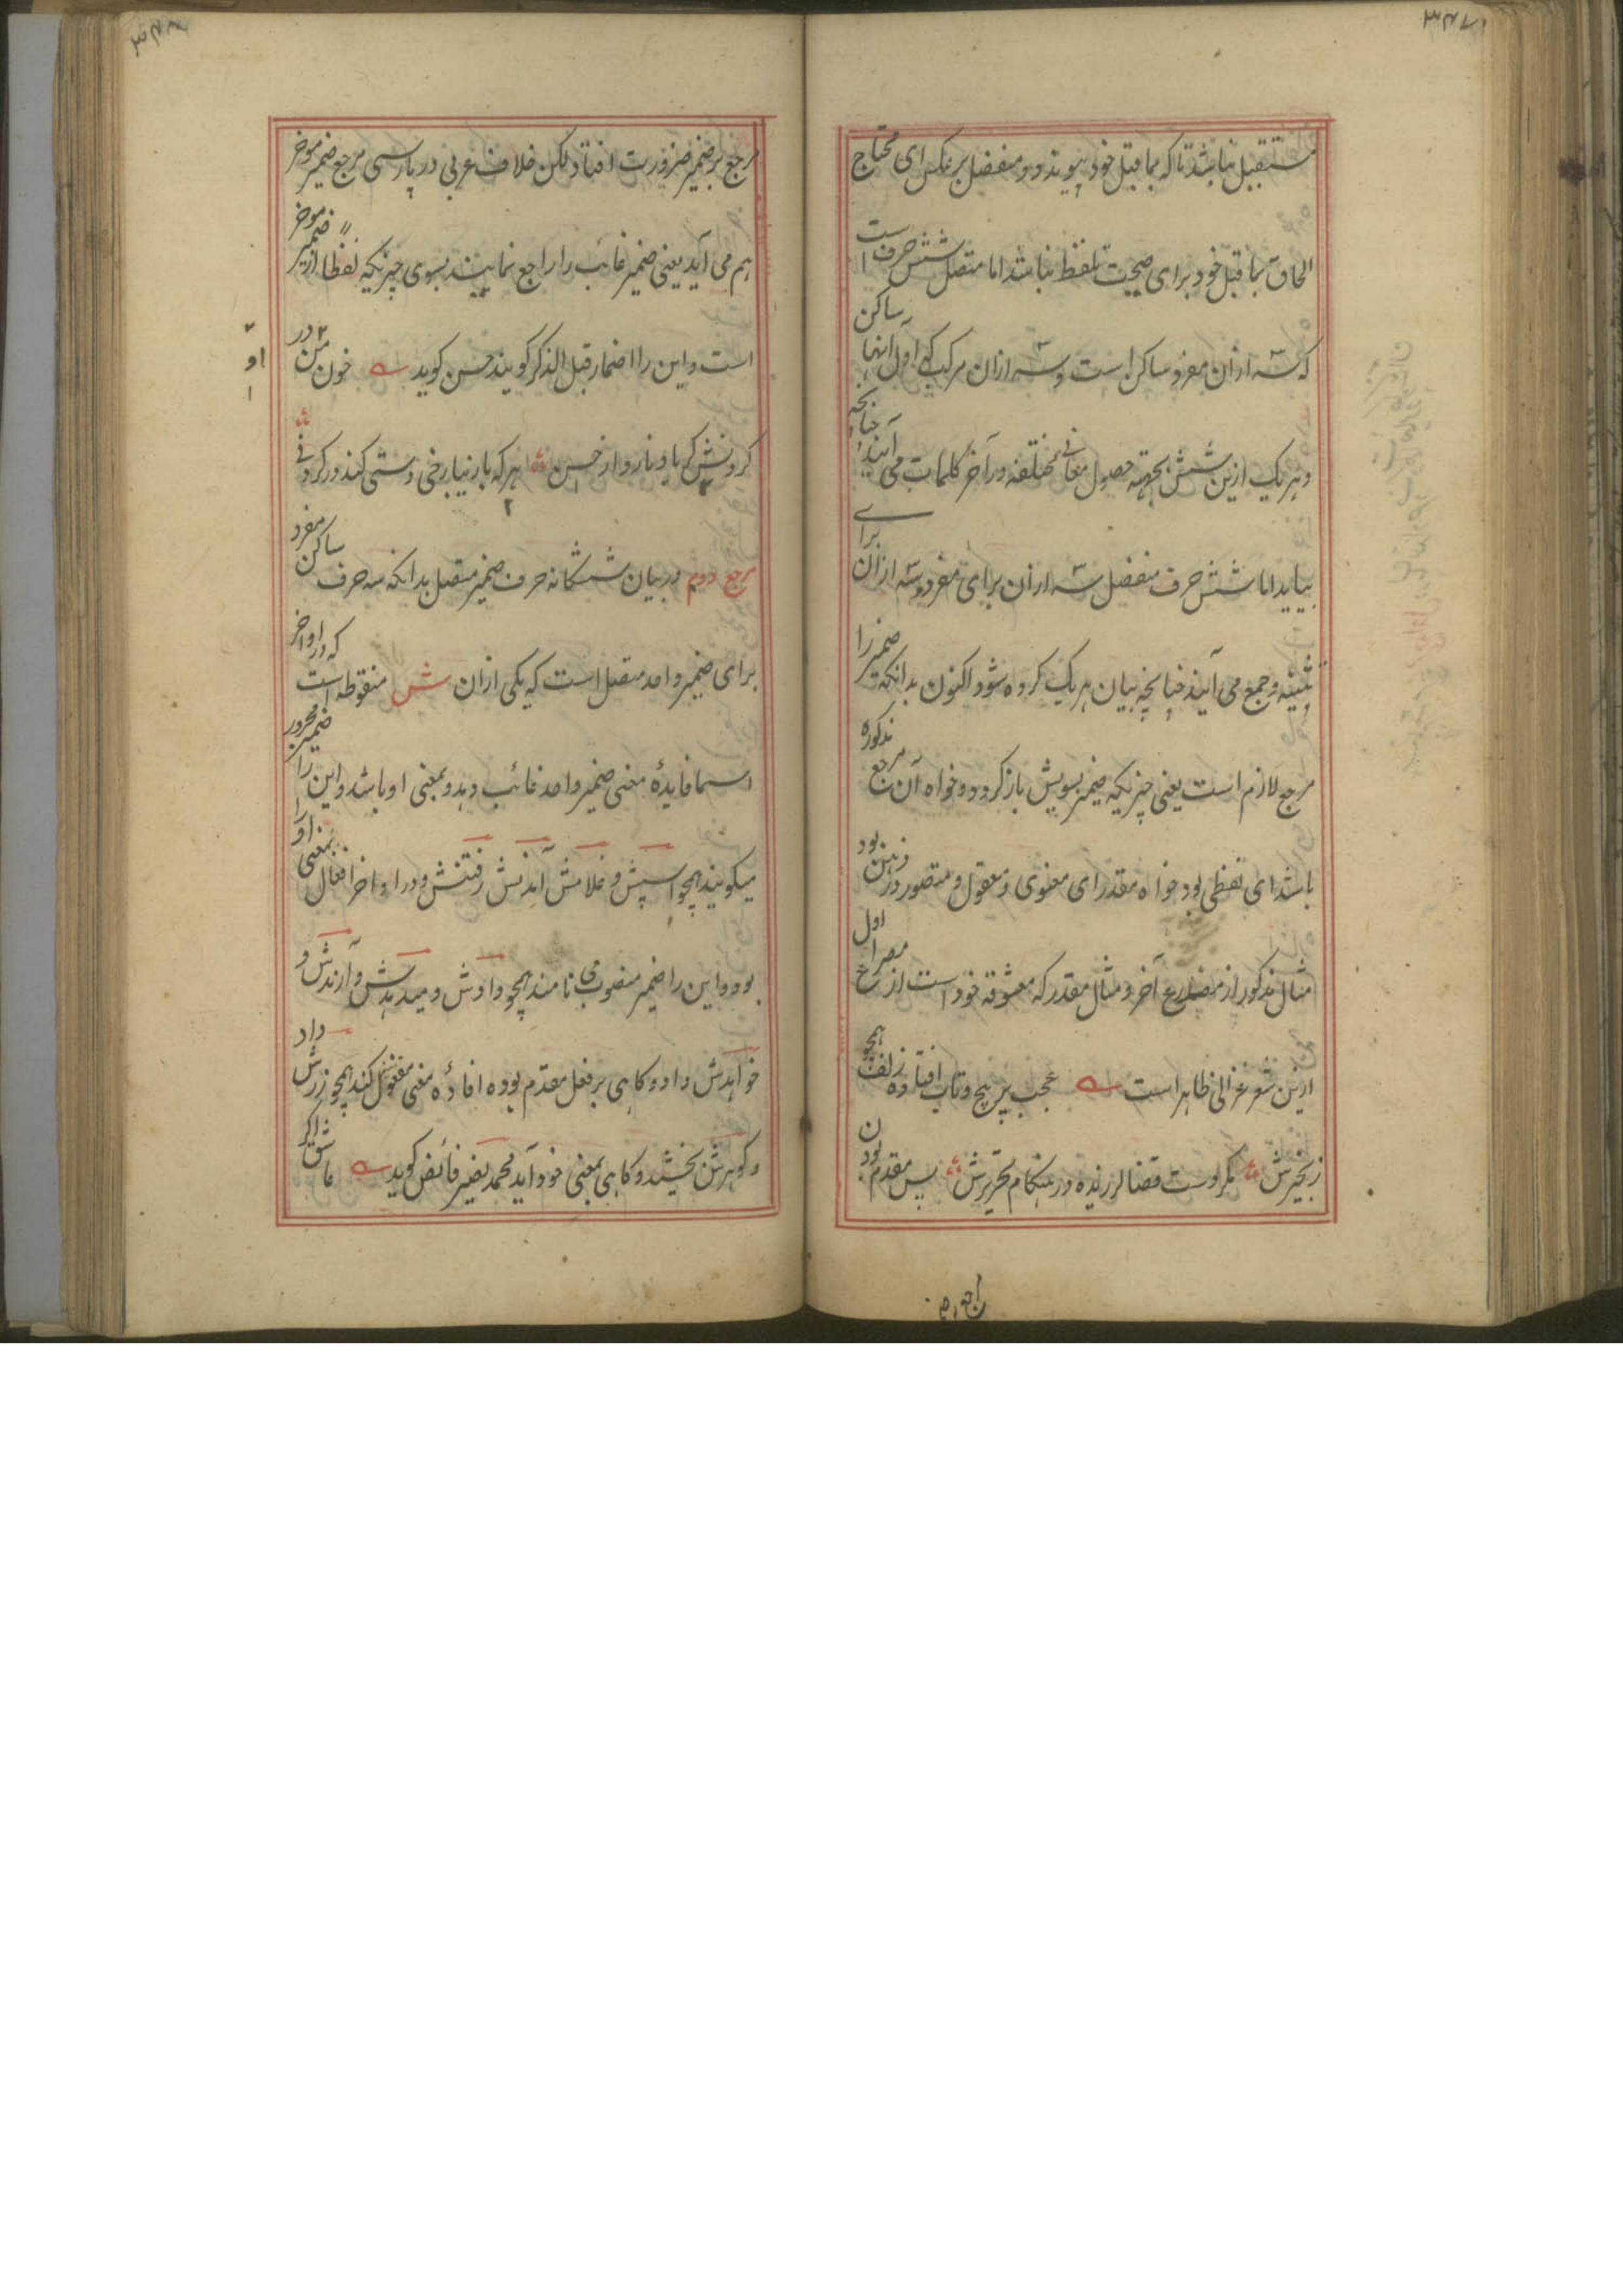 مستقبل نباشد تا که بماقبل خود پیوندد و منفصل برعکس ای محتاج
الحاق بماقبل خود برای صحت تلفظ نباشد اما متصل شش حرف است
که سه ازان مفرد ساکن است و سه ازان مرکب که اول آنها ساکن
و هر یک ازین شش بجهته حصول معانی مختلفه در آخر کلمات می آیند چنانچه
بیاید اما شش حرف منفصل سه ازان برای مفرد و سه ازان برای
تثنیه و جمع می آیند چنانچه بیان هر یک کرده شود اکنون بدانکه ضمیر را
مرجع لازم است یعنی چیزیکه ضمیر بسویش بازگردد و خواه آن مرجع مذکوره
باشد ای لفظی بود خواه مقدر ای معنوی و معقول و متصور در ذهن بود
مثال مذکور از مصراع آخر و مثال مقدر که معشوقه خود است از مصراع اول
ازین شعر غزالی ظاهر است عجب پر پیچ و تاب افتاده زلف همچو
زنجیرش مگر دست قضا لرزنده در هنگام تحریرش پس مقدم بودن
مرجع بر ضمیر ضرورت افتاد لکن خلاف عربی در پارسی مرجع ضمیر موخر
هم می آید یعنی ضمیر غائب را راجع نمایند بسوی چیزیکه لفظا از ضمیر موخر
است و این را اضمار قبل الذکر گویند حسن گوید خون من در
گردنش گر یاد نارد از حسن هر که با زیبا رخی دستی کند در گردنی
مرجع دوم در بیان ششگانه حرف ضمیر متصل بدانکه سه حرف ساکن مفرد
برای ضمیر واحد متصل است که یکی ازان ش منقوطه است که در اواخر
اسما فایدهٔ معنی ضمیر واحد غائب دهد و بمعنی او باشد و این را ضمیر مجرور
میگویند همچو اسپش و غلامش آمدنش رفتنش و در اواخر افعال بمعنی او را
بود و این را ضمیر منصوب می نامند همچو دادش و میدهدش و آرندش و
خواهدش داد و گاهی بر فعل مقدم بوده افادهٔ معنی مفعول کند همچو زرش داد
و گوهرش بخشید و گاهی بمعنی خود آید محمد نصیر فائض گوید عاشق اگر